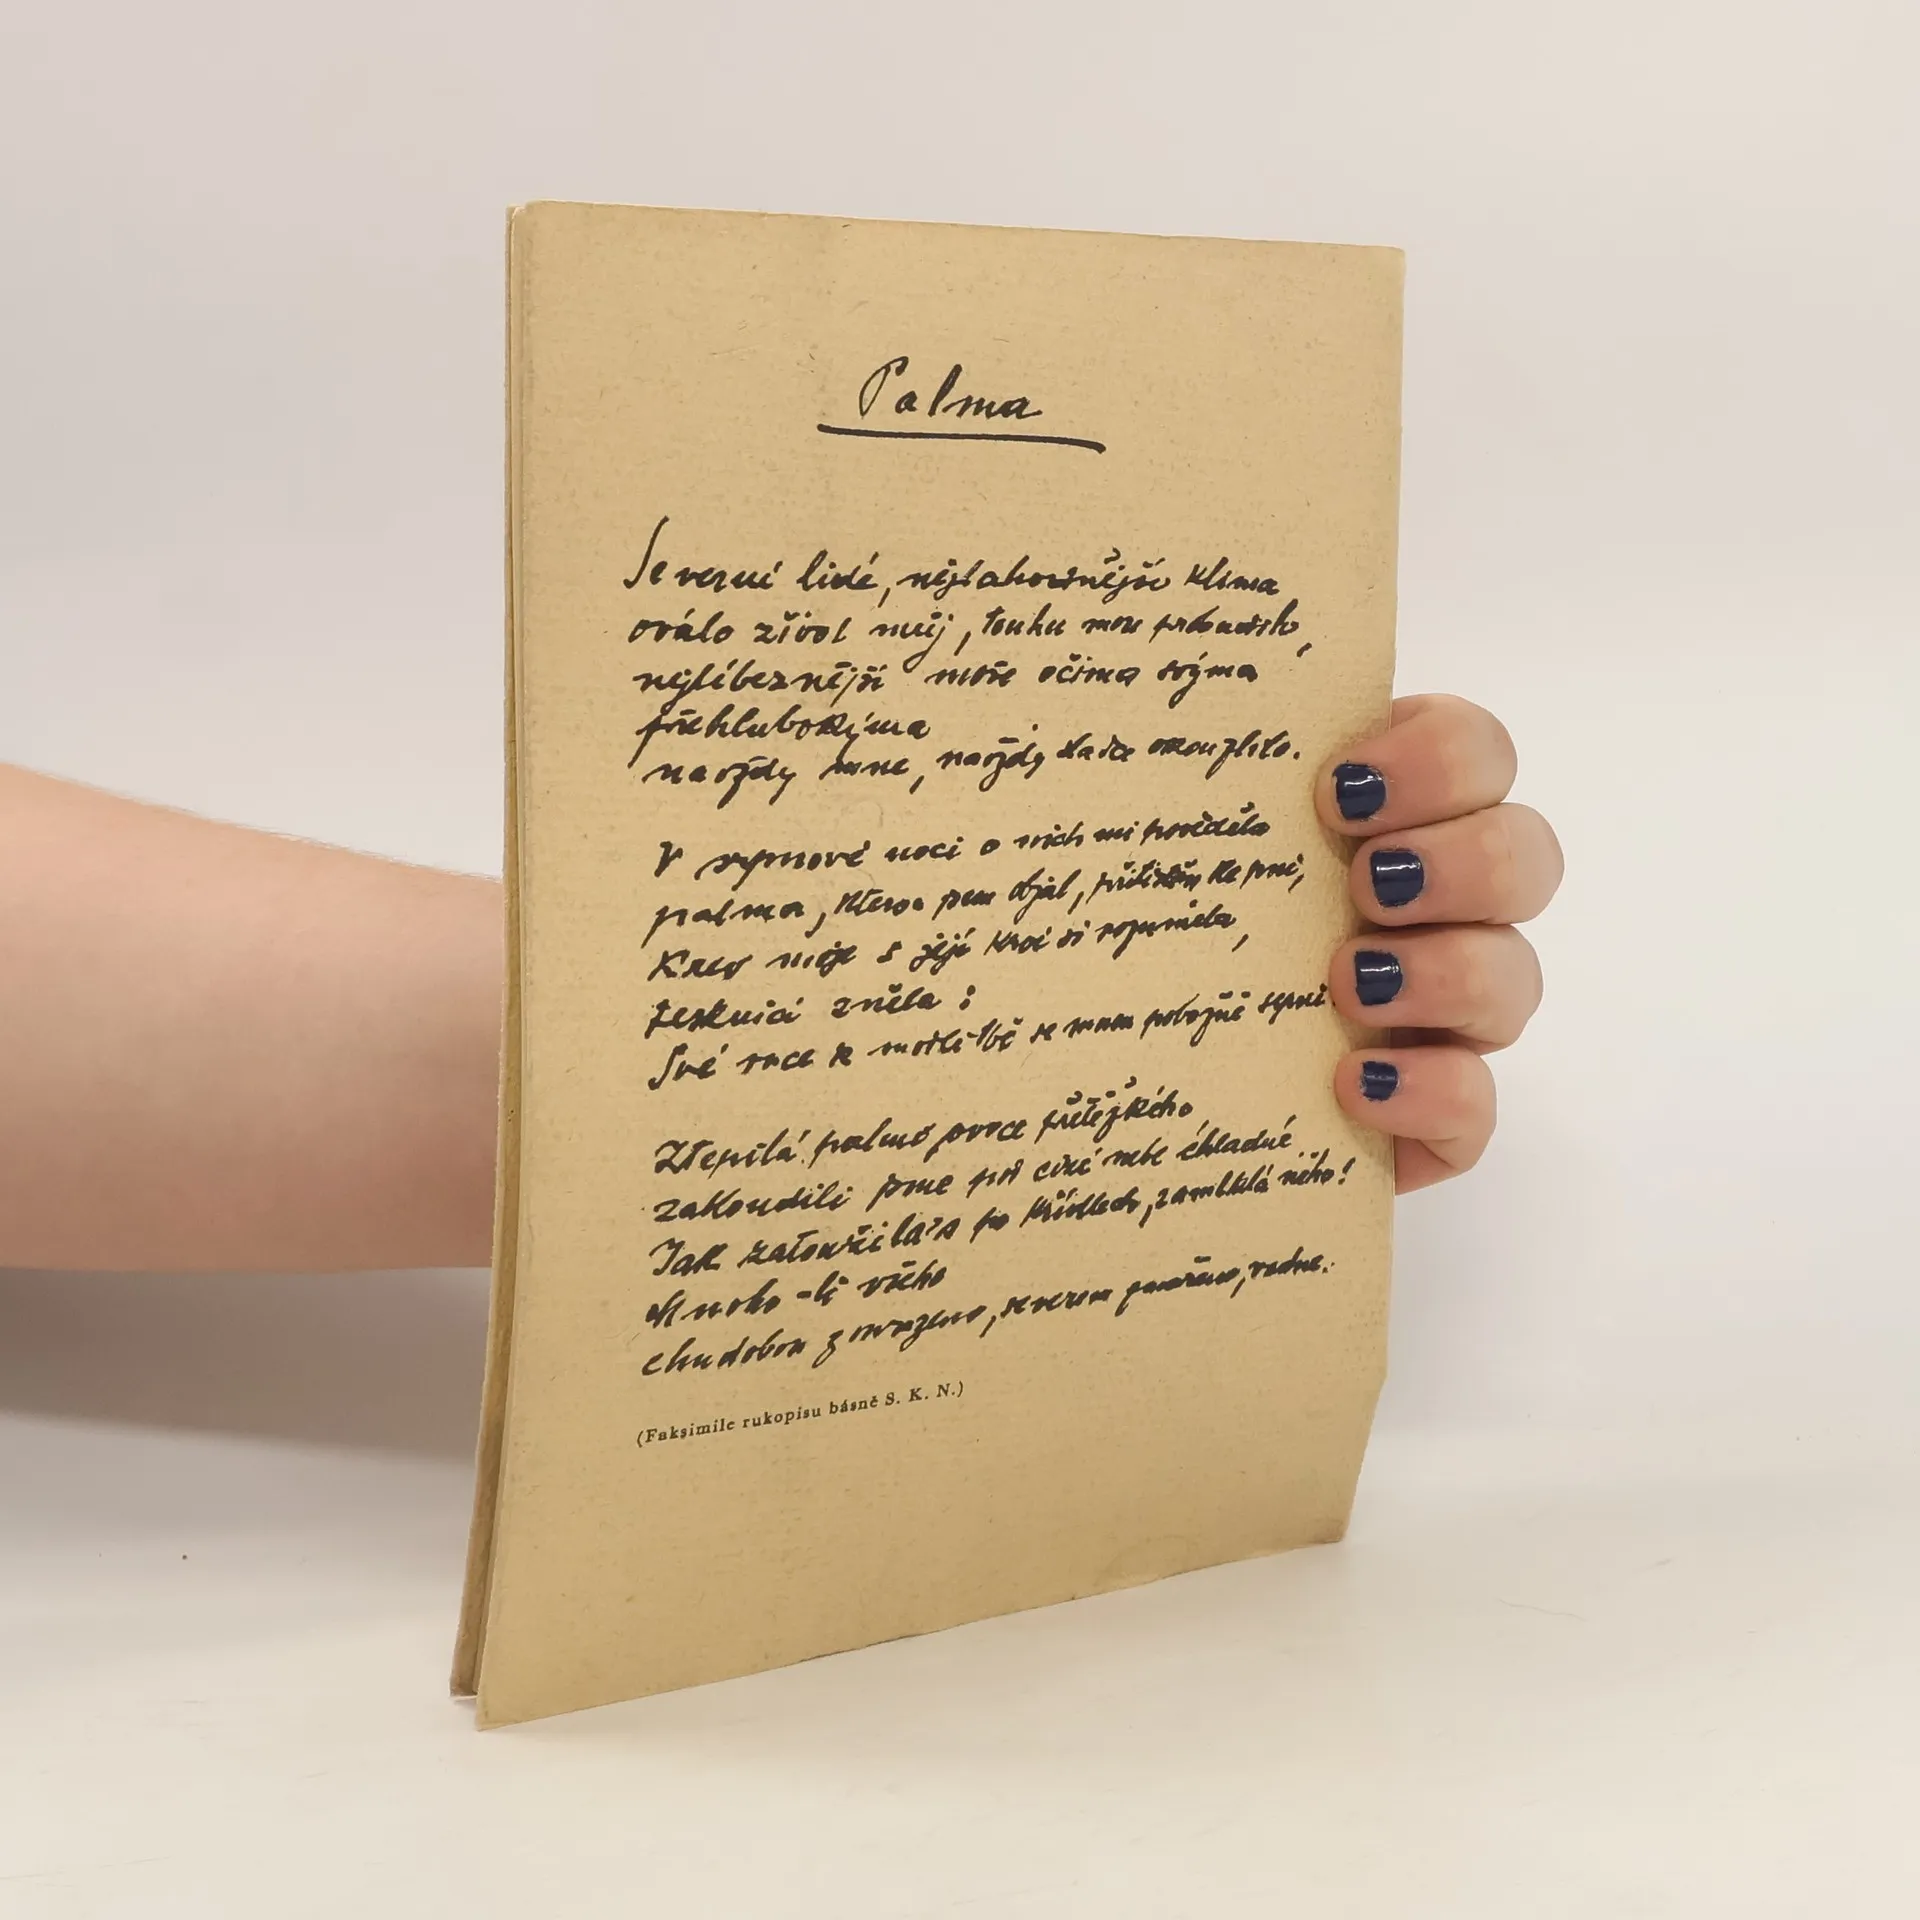 Palma
Severní lidé, nejlahodnější klima
oválo život můj, touhu mou probudilo,
nejlíbeznější moře očima svýma
přehlubokýma
navždy mne, navždy sladce okouzlilo.
V srpnové noci o nich mi pověděla
palma, kterou jsem objal, přitisknuv ke pni,
Krev moje s její krví si rozuměla,
teskníc zněla:
Své ruce k modlitbě se mnou pobožně sepni
Ztepilá palmo, ovoce přetěžkého
zakoudili jsme pod cizí nebe chladné
Jak zatoužila's po křídlech, zamlklá něho!
Mnoho-li všeho
chudobou zmrazeno, severem zmařeno, vadne.
(Faksimile rukopisu básně S. K. N.)